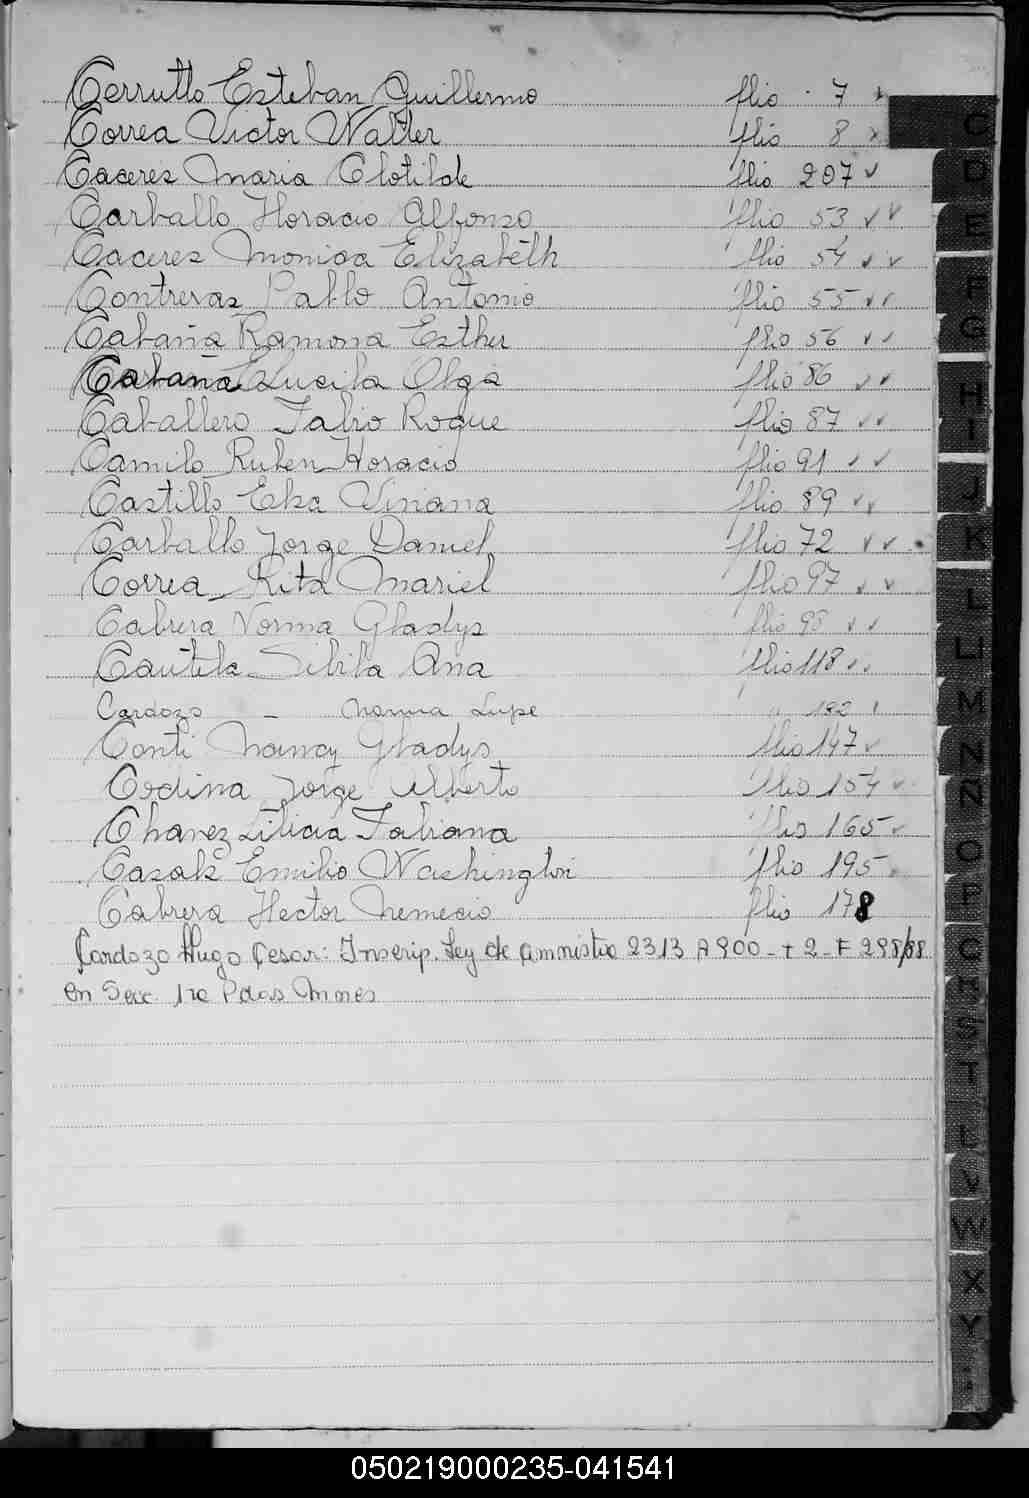 Cerrutto Esteban Guillermo flio 7
Correa Victor Walter flio 8
Caceres Maria Clotilde flio 207
Carballo Horacio Alfonso flio 53
Caceres Monica Elizabeth flio 54
Contreras Pablo Antonio flio 55
Cabaña Ramona Esther flio 56
Cabaña Lucila Olga flio 86
Caballero Fabio Roque flio 87
Camilo Ruben Horacio flio 91
Castillo Elsa Viviana flio 89
Carballo Jorge Daniel flio 72
Correa Rita Mariel flio 97
Cabrera Norma Gladys flio 98
Silvia Ana flio 118
Cardozo - Norma Lupe " 182
Conti Nancy Gladys flio 147
Codina Jorge Alberto flio 154
Chavez Liticia Fabiana flio 165
Casals Emilio Washington flio 195
Cabrera Hector Nemecio flio 178
Cardozo Hugo Cesar: Inscrip. Ley de Amnistia 2313 A 900 - t 2 - F 298/88
en Secc. 1ra Pdas Mnes
C
D
E
F
G
H
I
J
K
L
LL
M
N
Ñ
O
P
Q
R
S
T
U
V
W
X
Y
Z
050219000235-041541